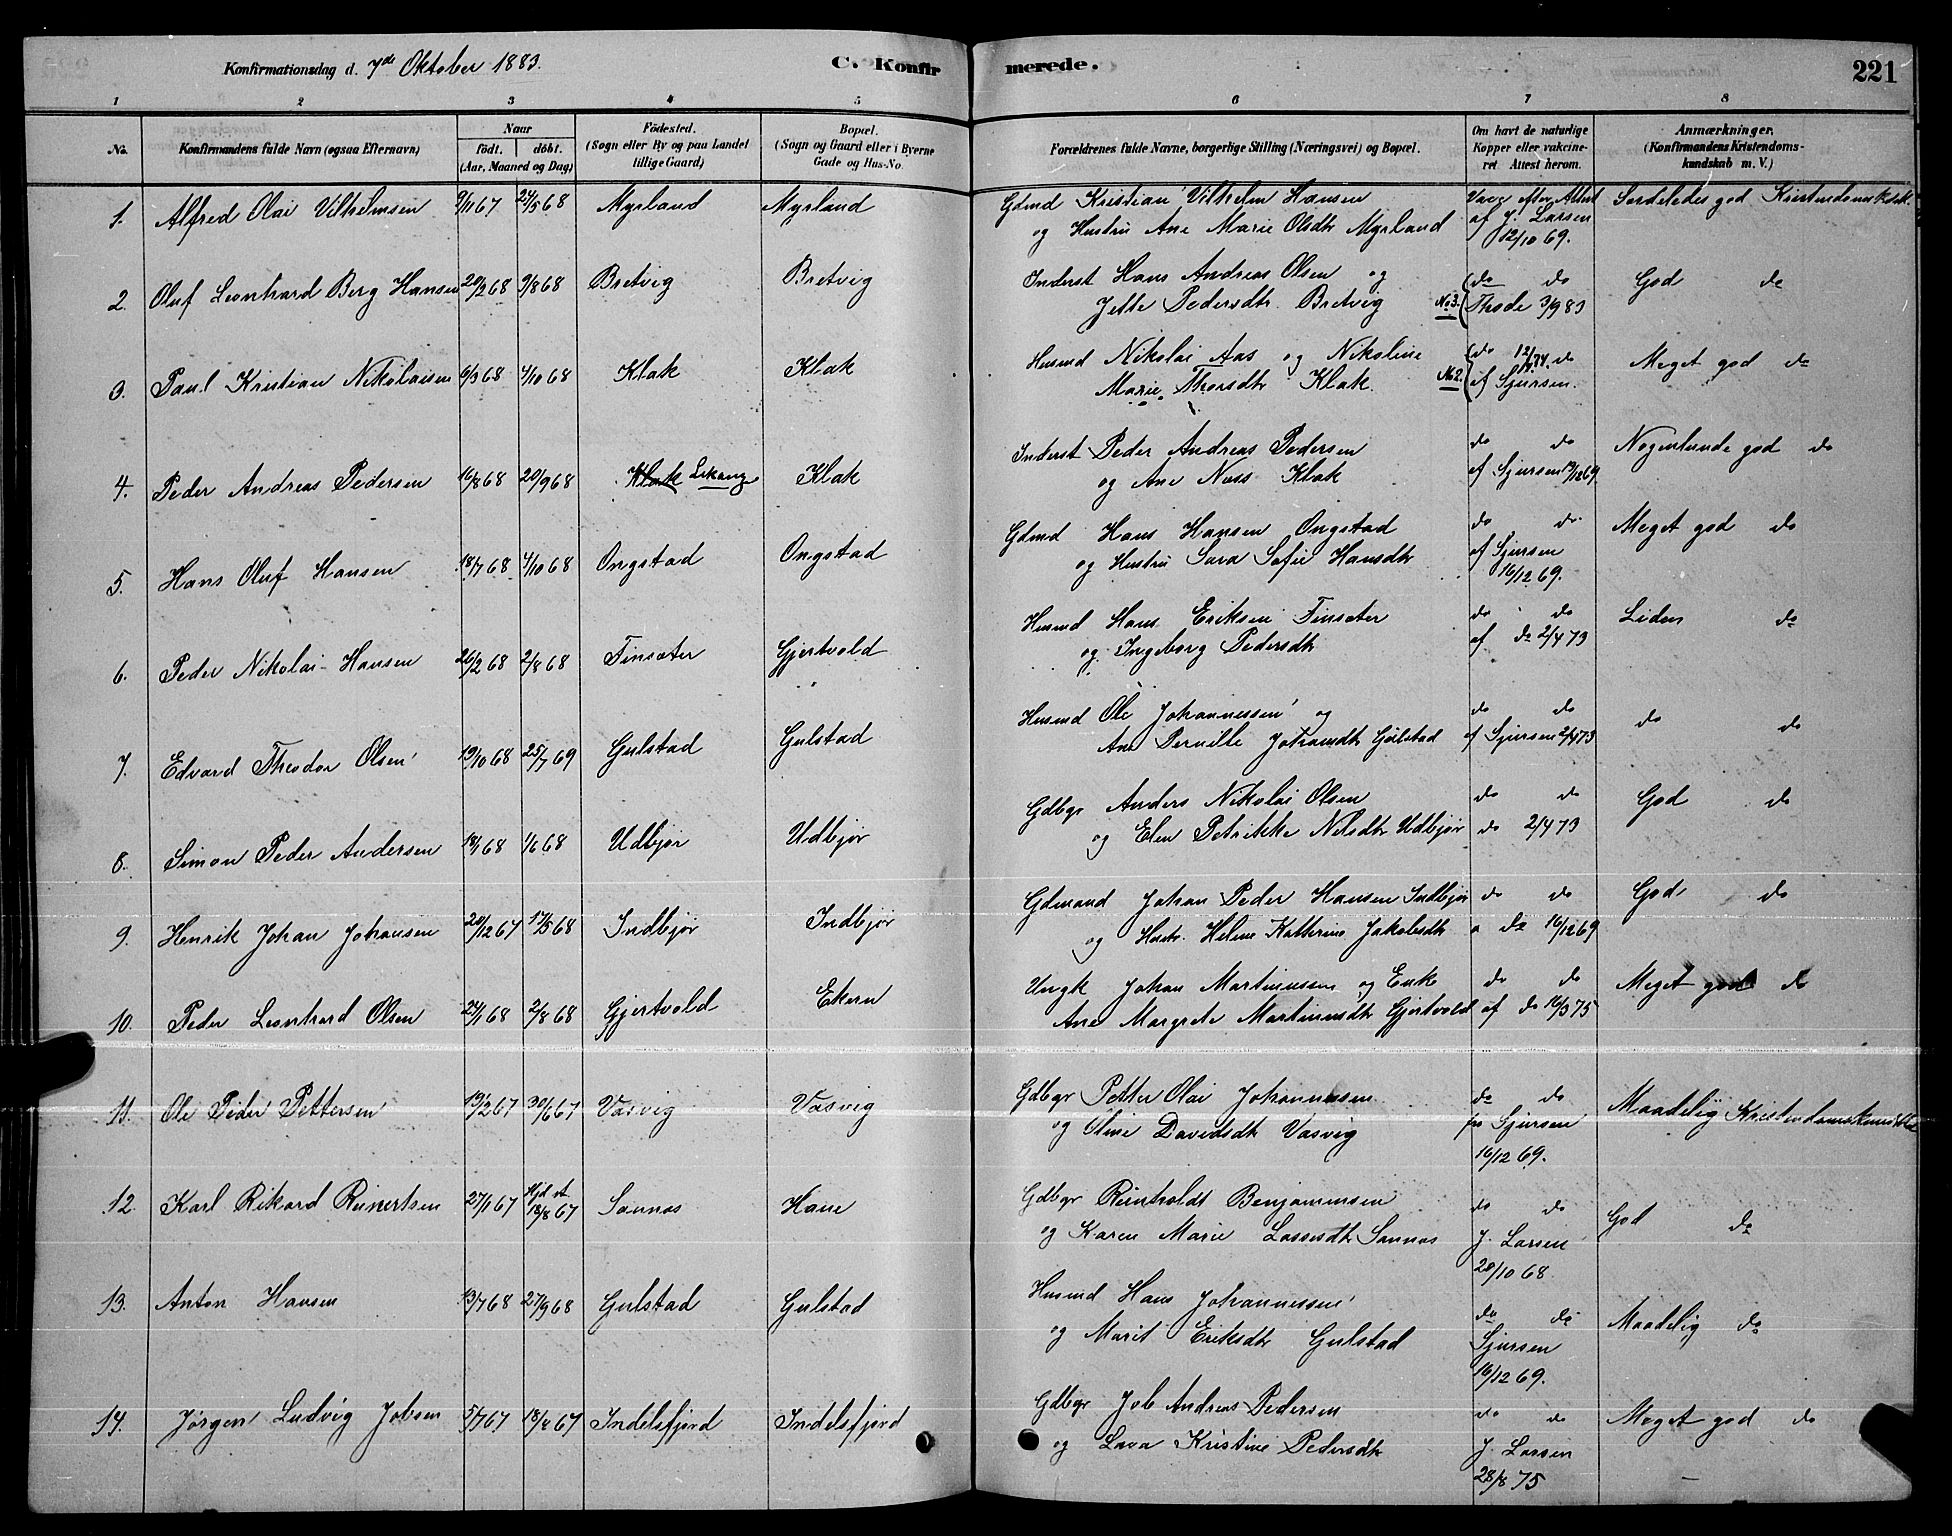 Konfirmationsdag d. 7de Oktober 1883.
C. Konfirmerede.
221
1 2 3 4 5 6 7 8
No.
Konfirmandens fulde Navn (ogsaa Efternavn)
Naar
født. døbt.
(Aar, Maaned og Dag)
Födested.
(Sogn eller By og paa Landet
tillige Gaard)
Bopæl.
(Sogn og Gaard eller i Byerne
Gade og Hus-No.
Forældrenes fulde Navne, borgerlige Stilling (Næringsvei) og Bopæl.
Om havt de naturlige
Kopper eller vakcine-
ret Attest herom.
Anmærkninger,
(Konfirmandens Kristendoms-
kundskab m. V.)
1. Alfred Olai Vilhelmsen 9/11 67 24/5 68 Myrland Myrland
Gdmd Kristian Vilhelm Hansen
og Hustru Ane Marie Olsdtr Myrland
Vacc. efter Attest
af J. Larsen
12/10 69.
Serdeledes god Kristendomskdsk.
2. Oluf Leonhard Berg Hansen 20/2 68 9/8 68 Bretvig Bretvig
Inderst Hans Andreas Olsen og
Jette Pedersdtr. Bretvig No 3.
do do
Thode 3/9 83
God do
3. Paul Kristian Nikolaisen 6/3 68 4/10 68 Klak Klak
Husmd Nikolai Aas og Nikoline
Marie Thorsdtr Klak. No 2.
do do
af Sjursen.
Meget god do
4. Peder Andreas Pedersen 16/8 68 20/9 68 Klak Lekang Klak
Inderst Peder Andreas Pedersen
og Ane Næss Klak
do do
af Sjursen 13/12 69.
Nogenlunde god do
5. Hans Oluf Hansen 18/7 68 4/10 68 Ongstad Ongstad
Gdmd Hans Hansen Ongstad
og Hustru Sara Sofie Hansdtr
do do
af Sjursen
16/12 69.
Meget god do
6. Peder Nikolai Hansen 26/2 68 2/8 68 Finsæter Gjertvold
Husmd Hans Eriksen Finsæter
og Ingeborg Pedersdtr
do do
af do 2/4 73
Liden do
7. Edvard Theodor Olsen 19/10 68 25/7 69 Gulstad Gulstad
Husmd Ole Johannessen og
Ane Pernille Johansdtr Gulstad
do do
af Sjursen 2/4 73
do do
8. Simon Peder Andersen 18/1 68 1/6 68 Udbjør Udbjør
Gdbgr Anders Nikolai Olsen
og Elen Petrikke Nilsdtr Udbjør
do do
do 2/4 73
God do
9. Henrik Johan Johansen 20/12 67 17/5 68 Indbjør Indbjør
Gdmand Johan Peder Hansen Indbjør
og Hustr. Helene Katterine Jakobsdtr
do do
a do 16/12 69
God do
10. Peder Leonhard Olsen 24/1 68 2/8 68 Gjertvold Ekern
Ungk Johan Martinussen og Enke
Ane Margrete Martinusdtr Gjertvold
do do
af do 16/3 75
Meget god do
11. Ole Peder Pettersen 13/2 67 30/6 67 Vasvig Vasvig
Gdbgr Petter Olai Johannessen
og Oline Davidsdtr Vasvig
do do
fra Sjursen
16/12 69.
Maadelig Kristendomskundskab
12. Karl Rikard Reinertsen 27/1 67 Hjd st. 18/8 67 Sannæs Hane
Gdbgr Reinholdt Benjaminsen
og Karen Marie Lassesdtr Sannæs
do do
J. Larsen
20/10 68
God do
13. Anton Hansen 13/7 68 27/9 68 Gulstad Gulstad
Husmd Hans Johannessen
og Marit Eriksdtr Gulstad
do do
Sjursen
16/12 69.
Maadelig do
14. Jørgen Ludvig Jobsen 5/7 67 18/8 67 Indelsfjord Indelsfjord
Gdbgr Job Andreas Pedersen
og Lava Kristine Pedersdtr
do do
J. Larsen
28/8 75
Meget god do